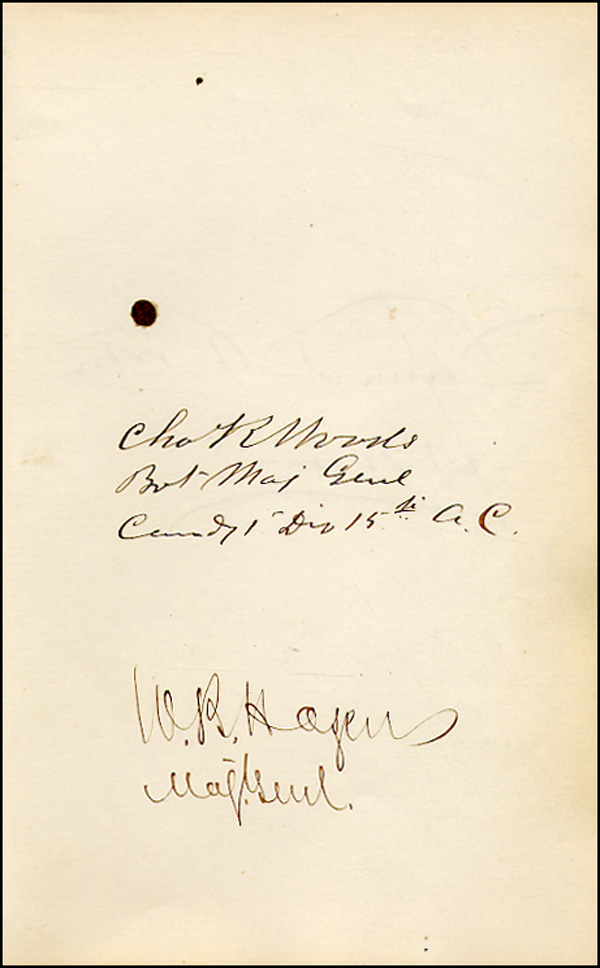 Chas R Woods
Bvt Maj Genl
Comdg 1st Div 15th A.C.
W. B. Hazen
Maj. Genl.